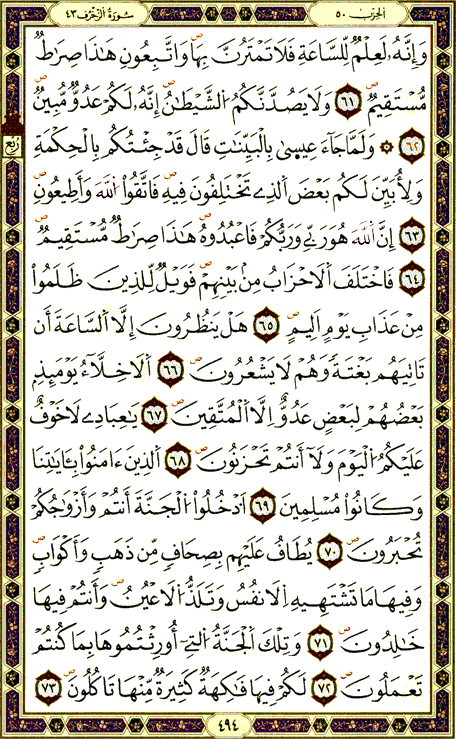 سُورَةُ الزُّخْرُف ٤٣
الحِزب ٥٠
وَإِنَّهُۥ لَعِلْمٌ لِّلسَّاعَةِ فَلَا تَمْتَرُنَّ بِهَا وَاتَّبِعُونِ هَٰذَا صِرَٰطٌ
مُّسْتَقِيمٌ ٦١ وَلَا يَصُدَّنَّكُمُ الشَّيْطَٰنُ إِنَّهُۥ لَكُمْ عَدُوٌّ مُّبِينٌ
ربع
٦٢ ۞ وَلَمَّا جَآءَ عِيسىٰ بِالْبَيِّنَٰتِ قَالَ قَدْ جِئْتُكُم بِالْحِكْمَةِ
وَلِأُبَيِّنَ لَكُم بَعْضَ الَذِے تَخْتَلِفُونَ فِيهِ فَاتَّقُواْ اللَّهَ وَأَطِيعُونِ
٦٣ إِنَّ اللَّهَ هُوَ رَبِّے وَرَبُّكُمْ فَاعْبُدُوهُ هَٰذَا صِرَٰطٌ مُّسْتَقِيمٌ
٦٤ فَاخْتَلَفَ الَاحْزَابُ مِنۢ بَيْنِهِمْ فَوَيْلٌ لِّلذِينَ ظَلَمُواْ
مِنْ عَذَابِ يَوْمٍ اَلِيمٍ ٦٥ هَلْ يَنظُرُونَ إِلَّا السَّاعَةَ أَن
تَاتِيَهُم بَغْتَةً وَهُمْ لَا يَشْعُرُونَ ٦٦ الَاخِلَّآءُ يَوْمَئِذٍ
بَعْضُهُمْ لِبَعْضٍ عَدُوٌّ اِلَّا الْمُتَّقِينَ ٦٧ يَٰعِبَادِے لَا خَوْفٌ
عَلَيْكُمُ الْيَوْمَ وَلَآ أَنتُمْ تَحْزَنُونَ ٦٨ الَذِينَ ءَامَنُواْ بِـَٔايَٰتِنَا
وَكَانُواْ مُسْلِمِينَ ٦٩ اَدْخُلُواْ الْجَنَّةَ أَنتُمْ وَأَزْوَٰجُكُمْ
تُحْبَرُونَ ٧٠ يُطَافُ عَلَيْهِم بِصِحَافٍ مِّن ذَهَبٍ وَأَكْوَابٍ
وَفِيهَا مَا تَشْتَهِيهِ اِلَانفُسُ وَتَلَذُّ الَاعْيُنُ وَأَنتُمْ فِيهَا
خَٰلِدُونَ ٧١ وَتِلْكَ الْجَنَّةُ الَتِےٓ أُورِثْتُمُوهَا بِمَا كُنتُمْ
تَعْمَلُونَ ٧٢ لَكُمْ فِيهَا فَٰكِهَةٌ كَثِيرَةٌ مِّنْهَا تَاكُلُونَ ٧٣
٤٩٤